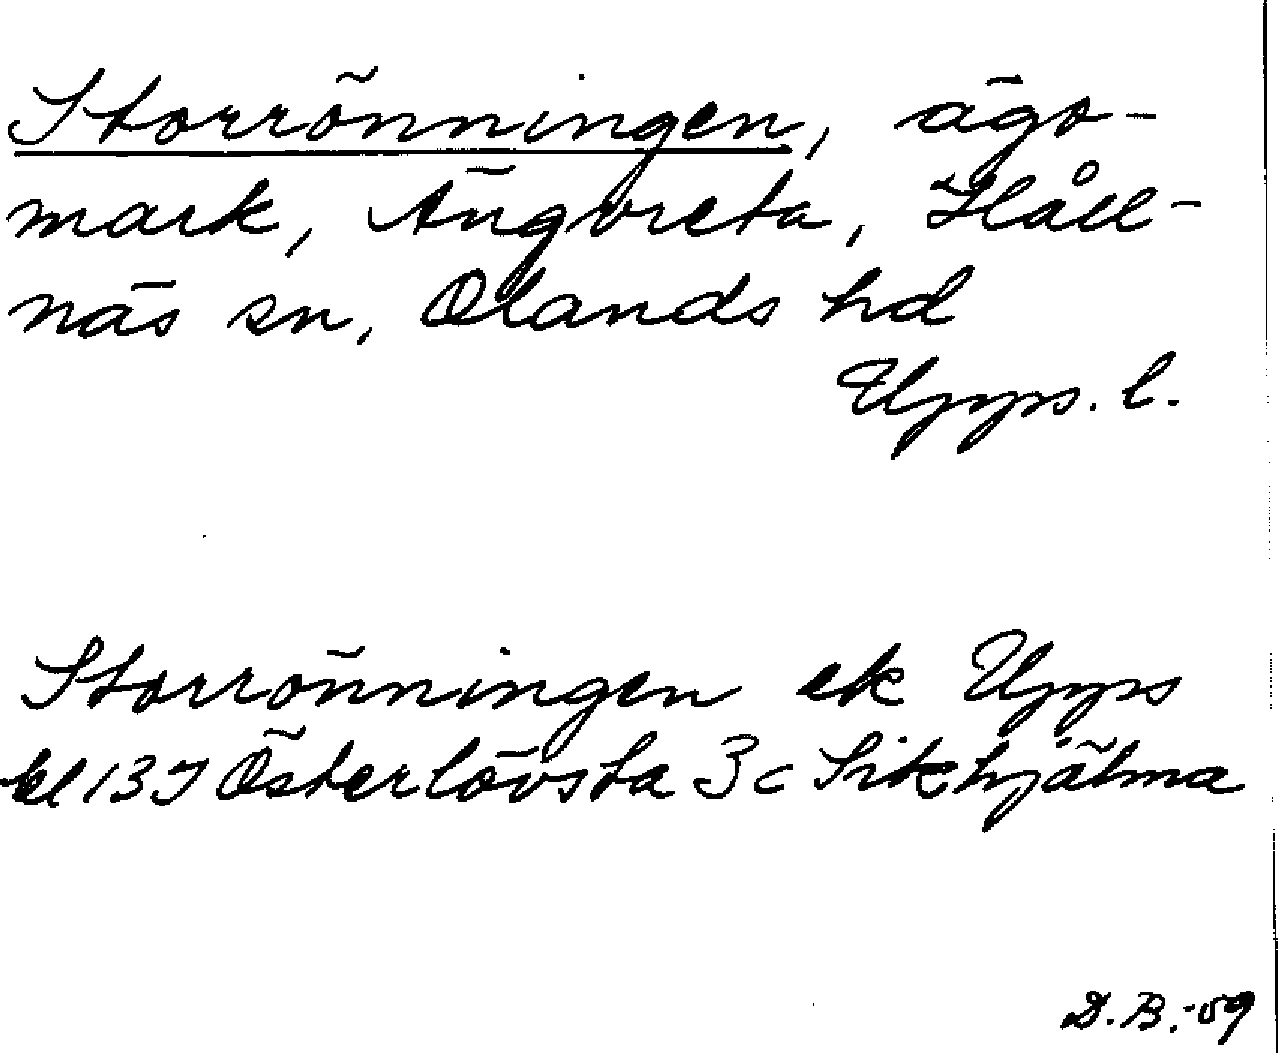 Storrönningen, ägo-
mark, Ängvreta, Håll-
näs sn, Olands hd
Upps. l.
Storrönningen ek Upps
bl 13J Österlövsta 3c Sikhjälma
D.B.-59